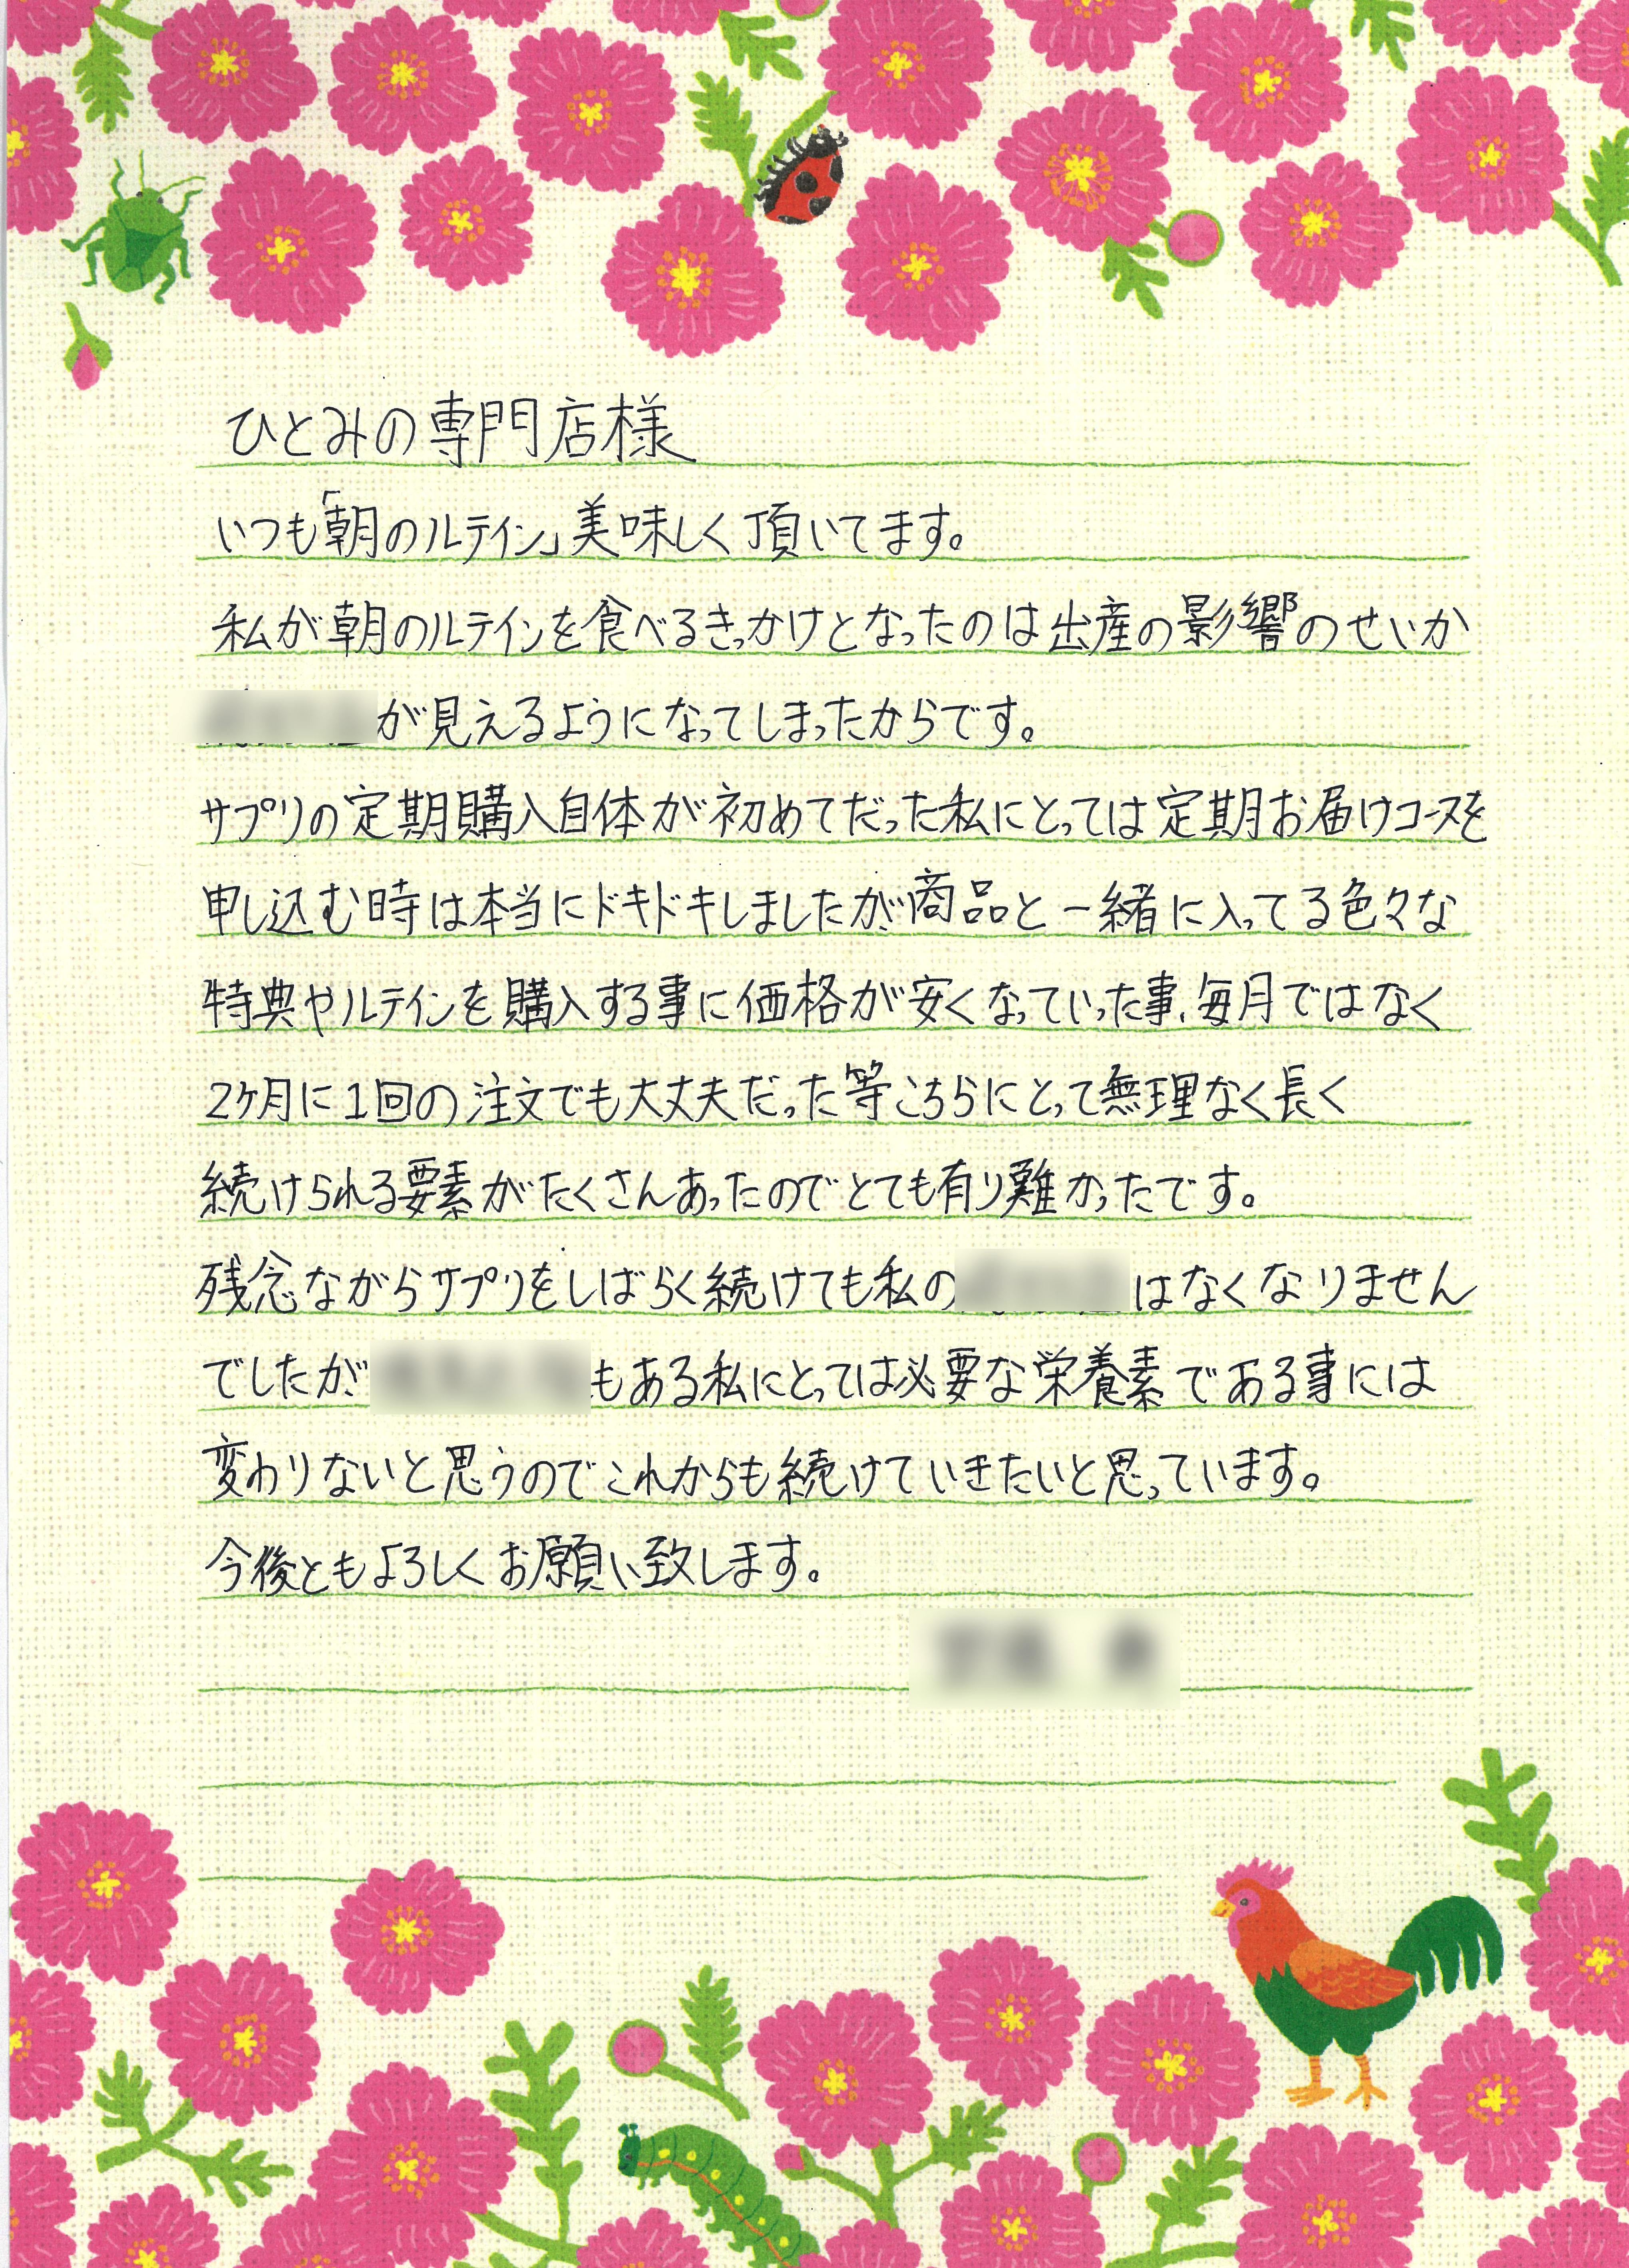 ひとみの専門店様
いつも「朝のルテイン」美味しく頂いてます。
私が朝のルテインを食べるきっかけとなったのは出産の影響のせいか
が見えるようになってしまったからです。
サプリの定期購入自体が初めてだった私にとっては定期お届けコースを
申し込む時は本当にドキドキしましたが、商品と一緒に入ってる色々な
特典やルテインを購入する事に価格が安くなっていった事、毎月ではなく
2ヶ月に1回の注文でも大丈夫だった等こちらにとって無理なく長く
続けられる要素がたくさんあったのでとても有り難かったです。
残念ながらサプリをしばらく続けても私の はなくなりません
でしたが、 もある私にとっては必要な栄養素である事には
変わりないと思うのでこれからも続けていきたいと思っています。
今後ともよろしくお願い致します。